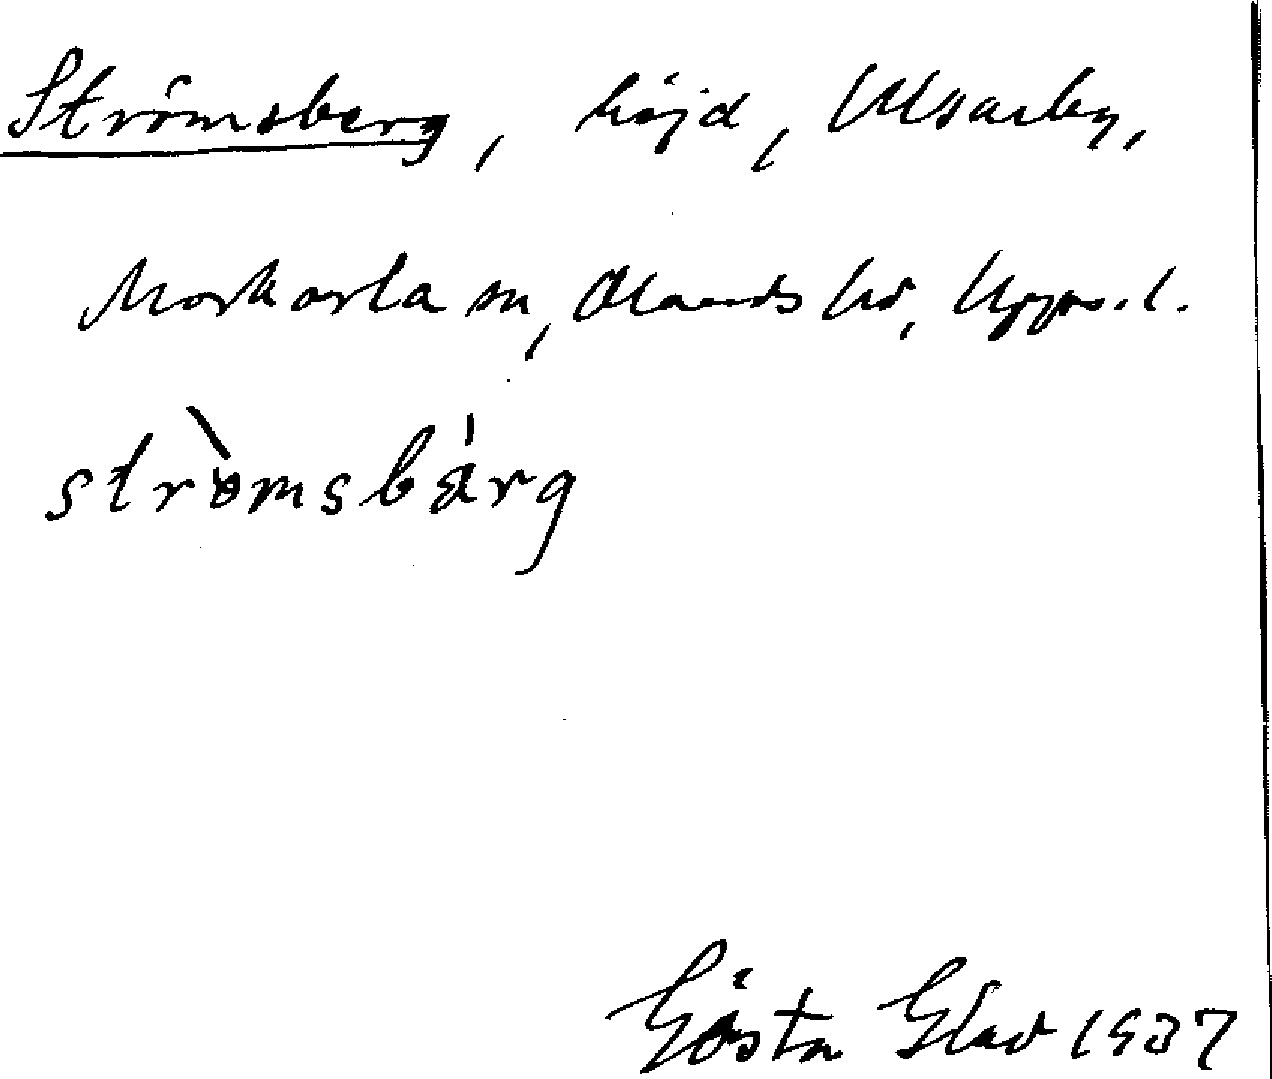 Strömsberg, höjd, Ulvsarby,
Morkarla sn, Olands hd, Upps. l.
strömsbärg
Gösta Glad 1937